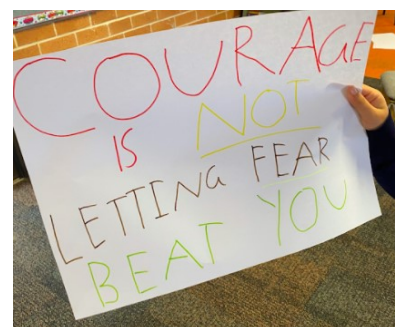 COURAGE
IS NOT
LETTING FEAR
BEAT YOU